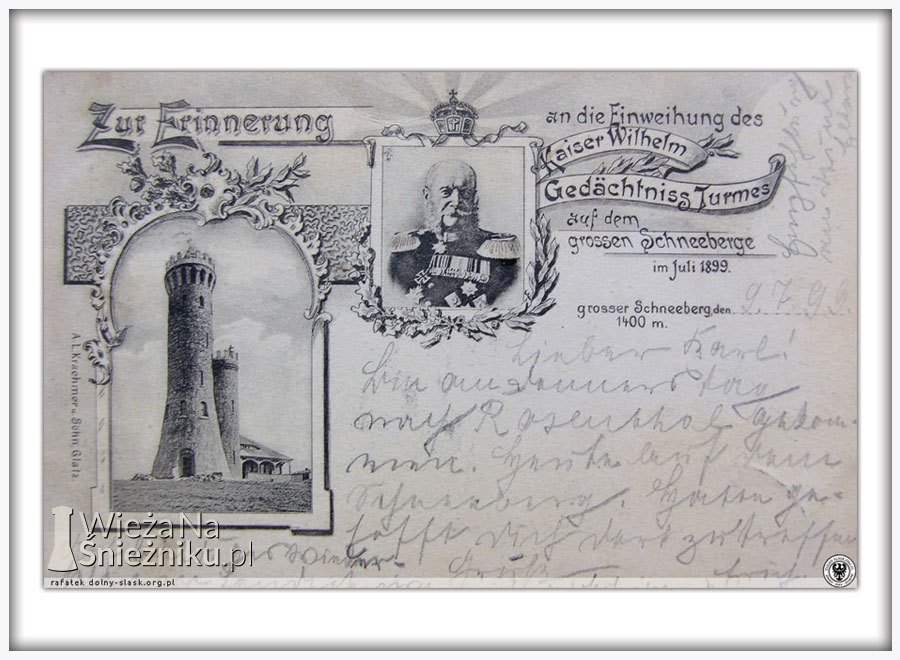 Zur Erinnerung
an die Einweihung des
Kaiser Wilhelm
Gedächtniss Turmes
auf dem
grossen Schneeberge
im Juli 1899.
grosser Schneeberg, den 9. 7. 99.
1400 m.
Lieber Karl!
Bin am Donnerstag
nach Rosenthal gekom-
men. Heute auf dem
Schneeberg. Hatte ge-
hofft Dich dort zu treffen
A. L. Kraehmer u. Sohn, Glatz
WieżaNa
Śnieżniku.pl
rafatek dolny-slask.org.pl